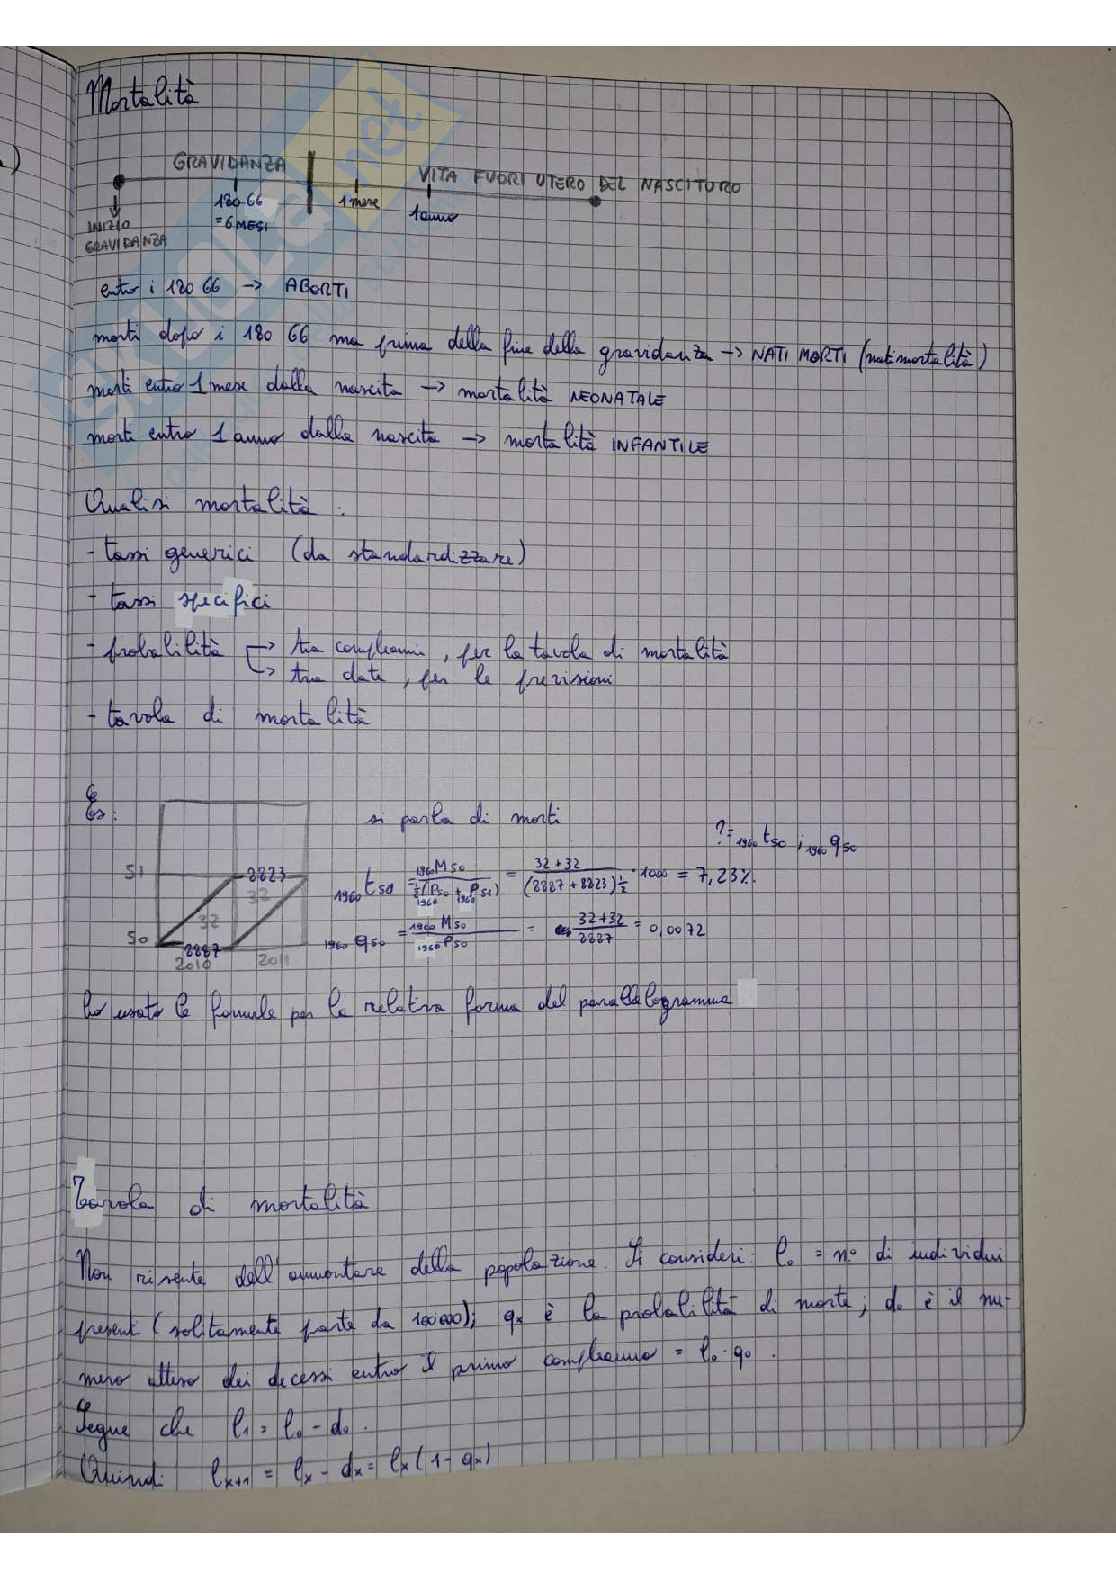 Mortalità
GRAVIDANZA
VITA FUORI UTERO DEL NASCITURO
INIZIO GRAVIDANZA
180 GG = 6 MESI
1 mese
1 anno
entro i 180 GG -> ABORTI
morti dopo i 180 GG ma prima della fine della gravidanza -> NATI MORTI (natimortalità)
morti entro 1 mese dalla nascita -> mortalità NEONATALE
morti entro 1 anno dalla nascita -> mortalità INFANTILE
Analisi mortalità:
- tassi generici (da standardizzare)
- tassi specifici
- probabilità -> tra compleanni, per la tavola di mortalità
-> tra date, per le previsioni
- tavola di mortalità
Es:
si parla di morti
?= 1960 t50 ; 1960 q50
51 8823
32
32
50 8887
2010 2011
1960 t50 = 1960 M50 / ½(1960 P50 + 1960 P51) = 32+32 / (8887+8823)½ · 1000 = 7,23‰
1960 q50 = 1960 M50 / 1960 P50 = 32+32 / 8887 = 0,0072
ho usato le formule per la relativa forma del parallelogramma
Tavola di mortalità
Non risente dell'ammontare della popolazione. Si consideri: l₀ = n° di individui
presenti (solitamente parte da 100000); qx è la probabilità di morte; d₀ è il nu-
mero atteso dei decessi entro il primo compleanno = l₀·q₀.
Segue che l₁ = l₀ - d₀.
Quindi lx+1 = lx - dx = lx (1 - qx)